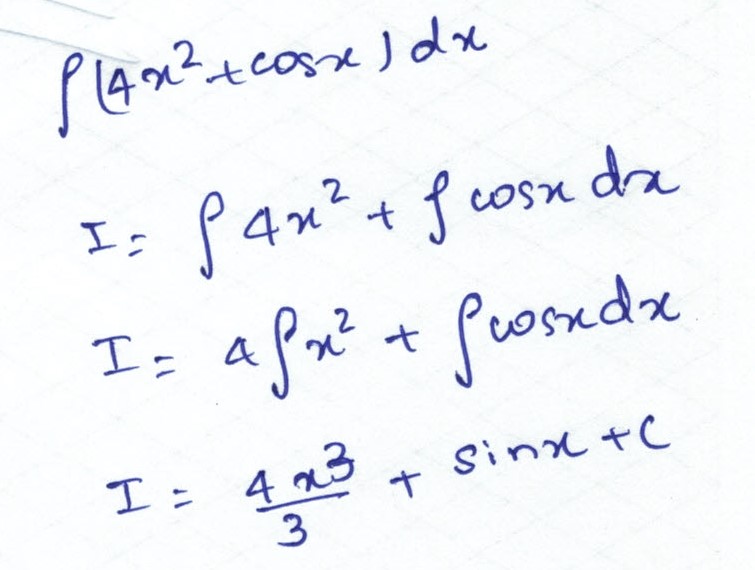 ∫(4x²+cosx) dx
I = ∫ 4x² + ∫ cosx dx
I = 4∫x² + ∫cosxdx
I = 4x³/3 + sinx + C